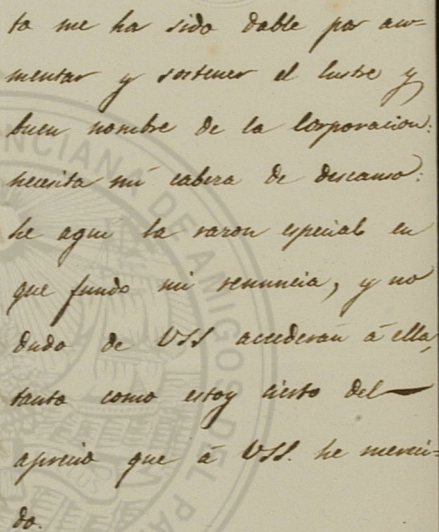 to me ha sido dable por au-
mentar y sostener el lustre y
buen nombre de la Corporacion:
necesita mi cabeza de descanso:
he aqui la razon especial en
que fundo mi renuncia, y no
dudo de USS accederán á ella,
tanto como estoy cierto del
aprecio que á USS. he mereci-
do.
NCIANA DE AMIGOS DEL PA